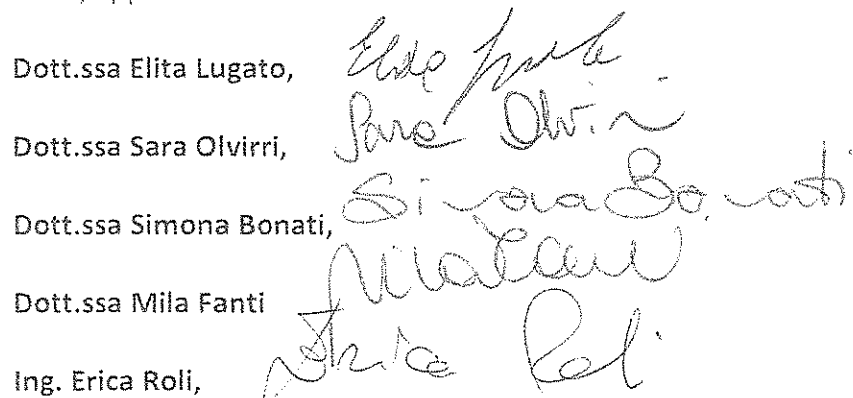 Dott.ssa Elita Lugato,
Dott.ssa Sara Olvirri, Sara Olvirri
Dott.ssa Simona Bonati, Simona Bonati
Dott.ssa Mila Fanti
Ing. Erica Roli, Erica Roli